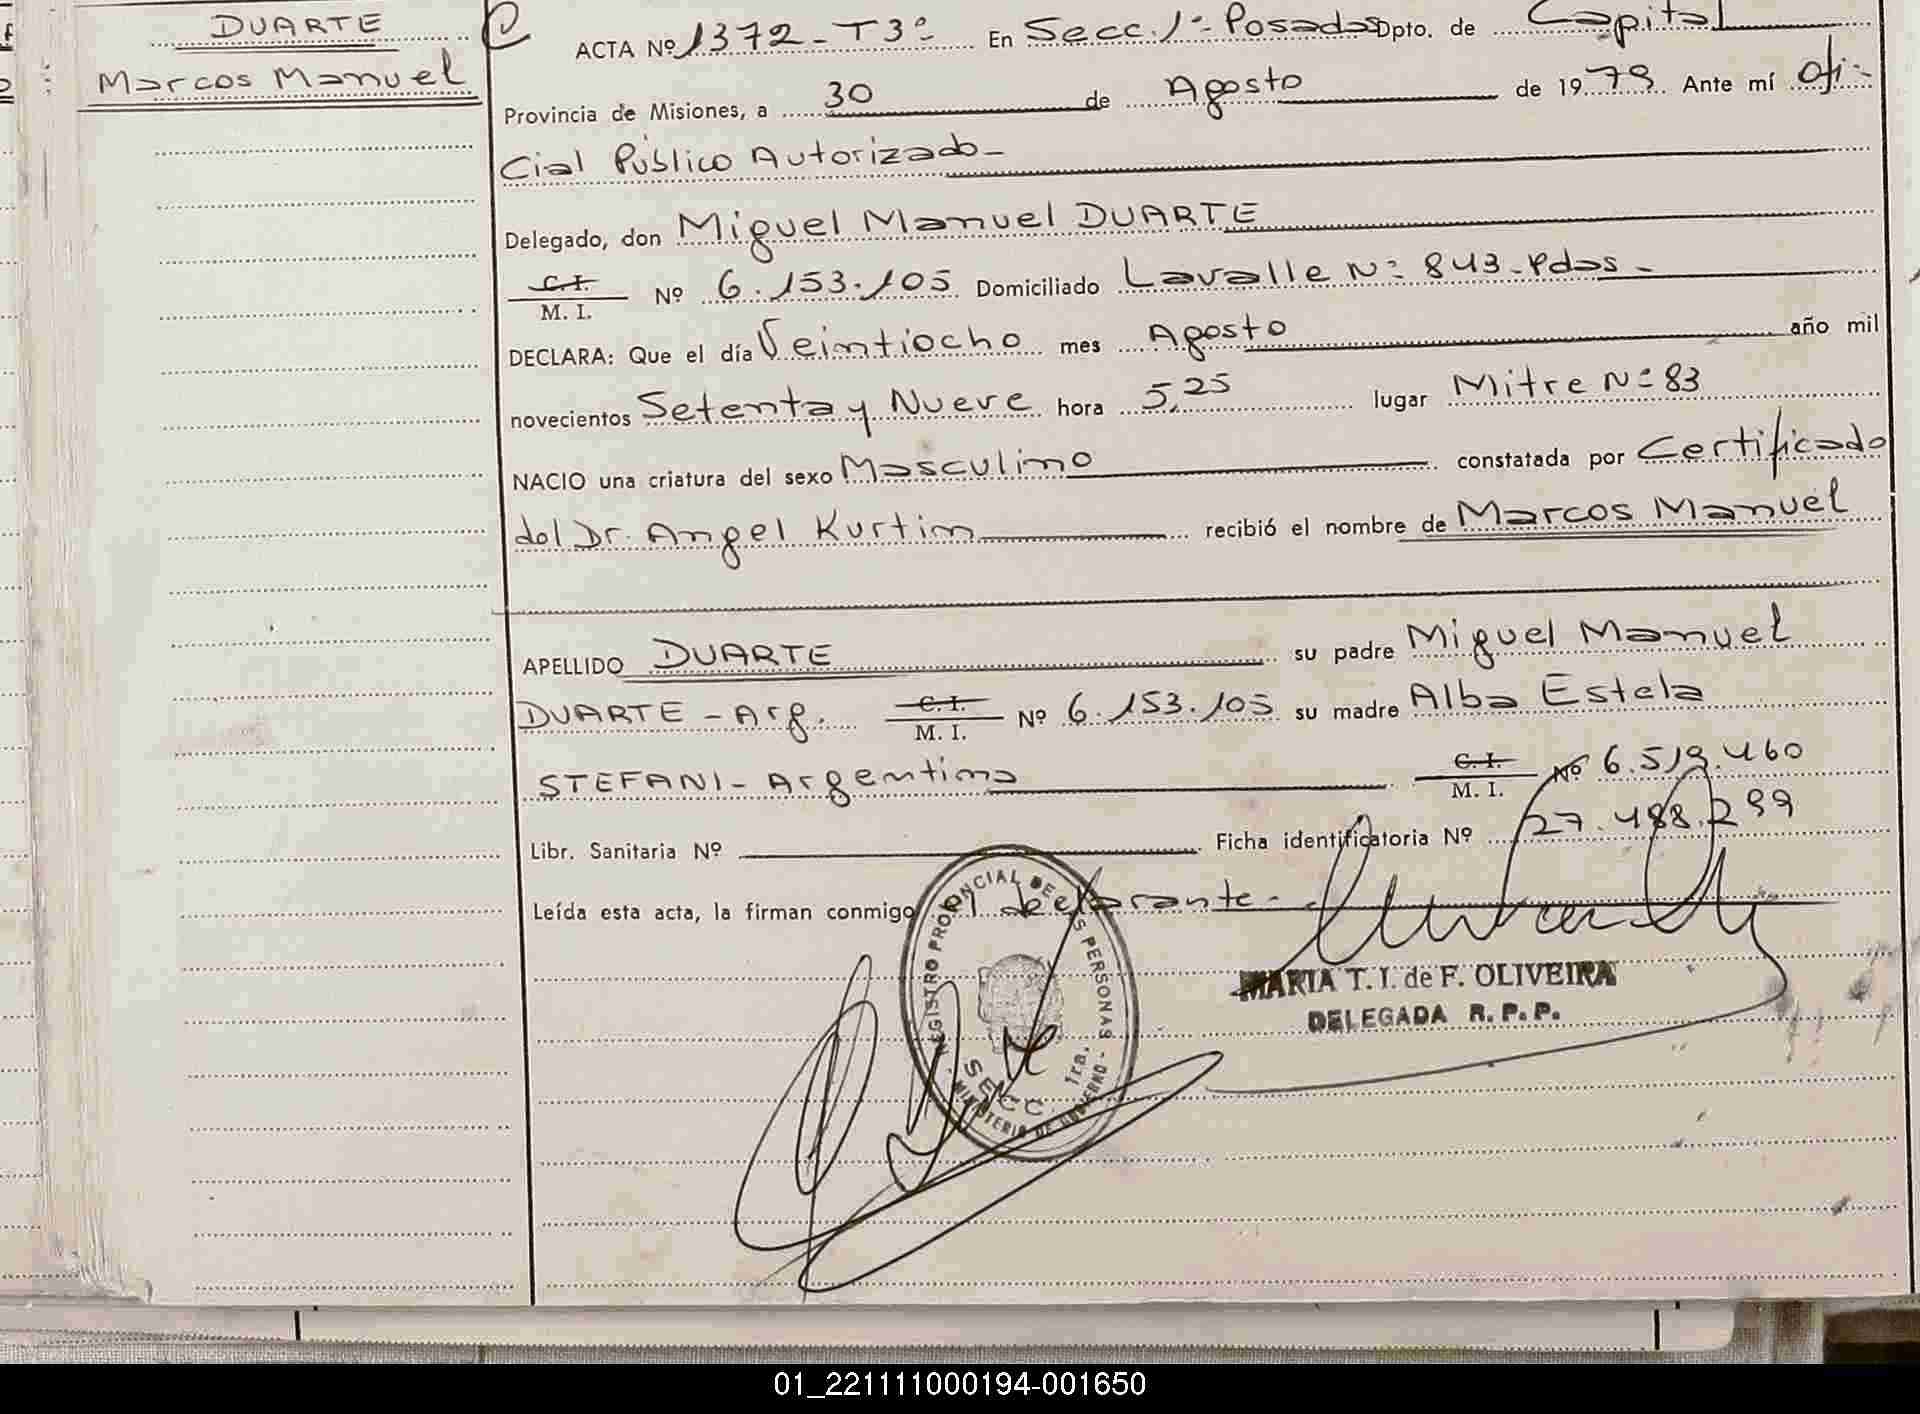 DUARTE
Marcos Manuel
ACTA Nº 1372-T3º En Secc. 1º Posadas Dpto. de Capital
Provincia de Misiones, a 30 de Agosto de 1979 Ante mí Ofi-
cial Público Autorizado-
Delegado, don Miguel Manuel DUARTE
C.I. M. I. Nº 6.153.105 Domiciliado Lavalle Nº 843-Pdas-
DECLARA: Que el día Veintiocho mes Agosto año mil
novecientos Setenta y Nueve hora 5,25 lugar Mitre Nº 83
NACIO una criatura del sexo Masculino constatada por Certificado
del Dr. Angel Kurtim recibió el nombre de Marcos Manuel
APELLIDO DUARTE su padre Miguel Manuel
DUARTE - Arg. C.I. M. I. Nº 6.153.105 su madre Alba Estela
STEFANI - Argentina C.I. M. I. Nº 6.519.460
Libr. Sanitaria Nº Ficha identificatoria Nº 27.488.299
Leída esta acta, la firman conmigo el declarante-
REGISTRO PROVINCIAL DE LAS PERSONAS
SECC. 1ra.
MINISTERIO DE GOBIERNO
MARIA T. I. de F. OLIVEIRA
DELEGADA R. P. P.
01_221111000194-001650